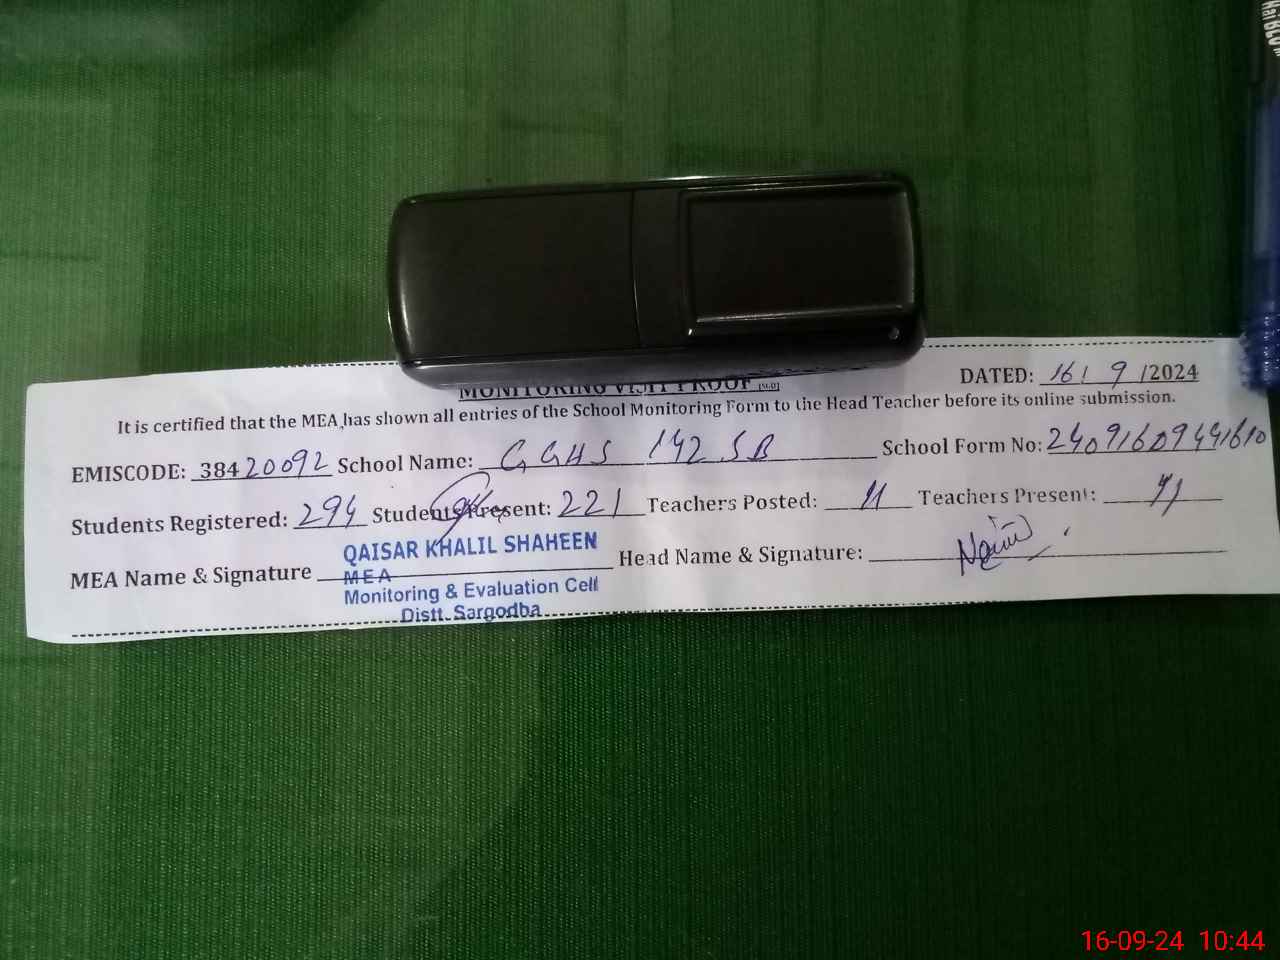 MONITORING VISIT PROOF [SED]
DATED: 16/9/2024
It is certified that the MEA has shown all entries of the School Monitoring Form to the Head Teacher before its online submission.
EMISCODE: 38420092 School Name: GGHS 142 SB School Form No:
Students Registered: 294 Students Present: 221 Teachers Posted: 11 Teachers Present: 11
MEA Name & Signature QAISAR KHALIL SHAHEEN Head Name & Signature:
MEA
Monitoring & Evaluation Cell
Distt. Sargodha
16-09-24 10:44